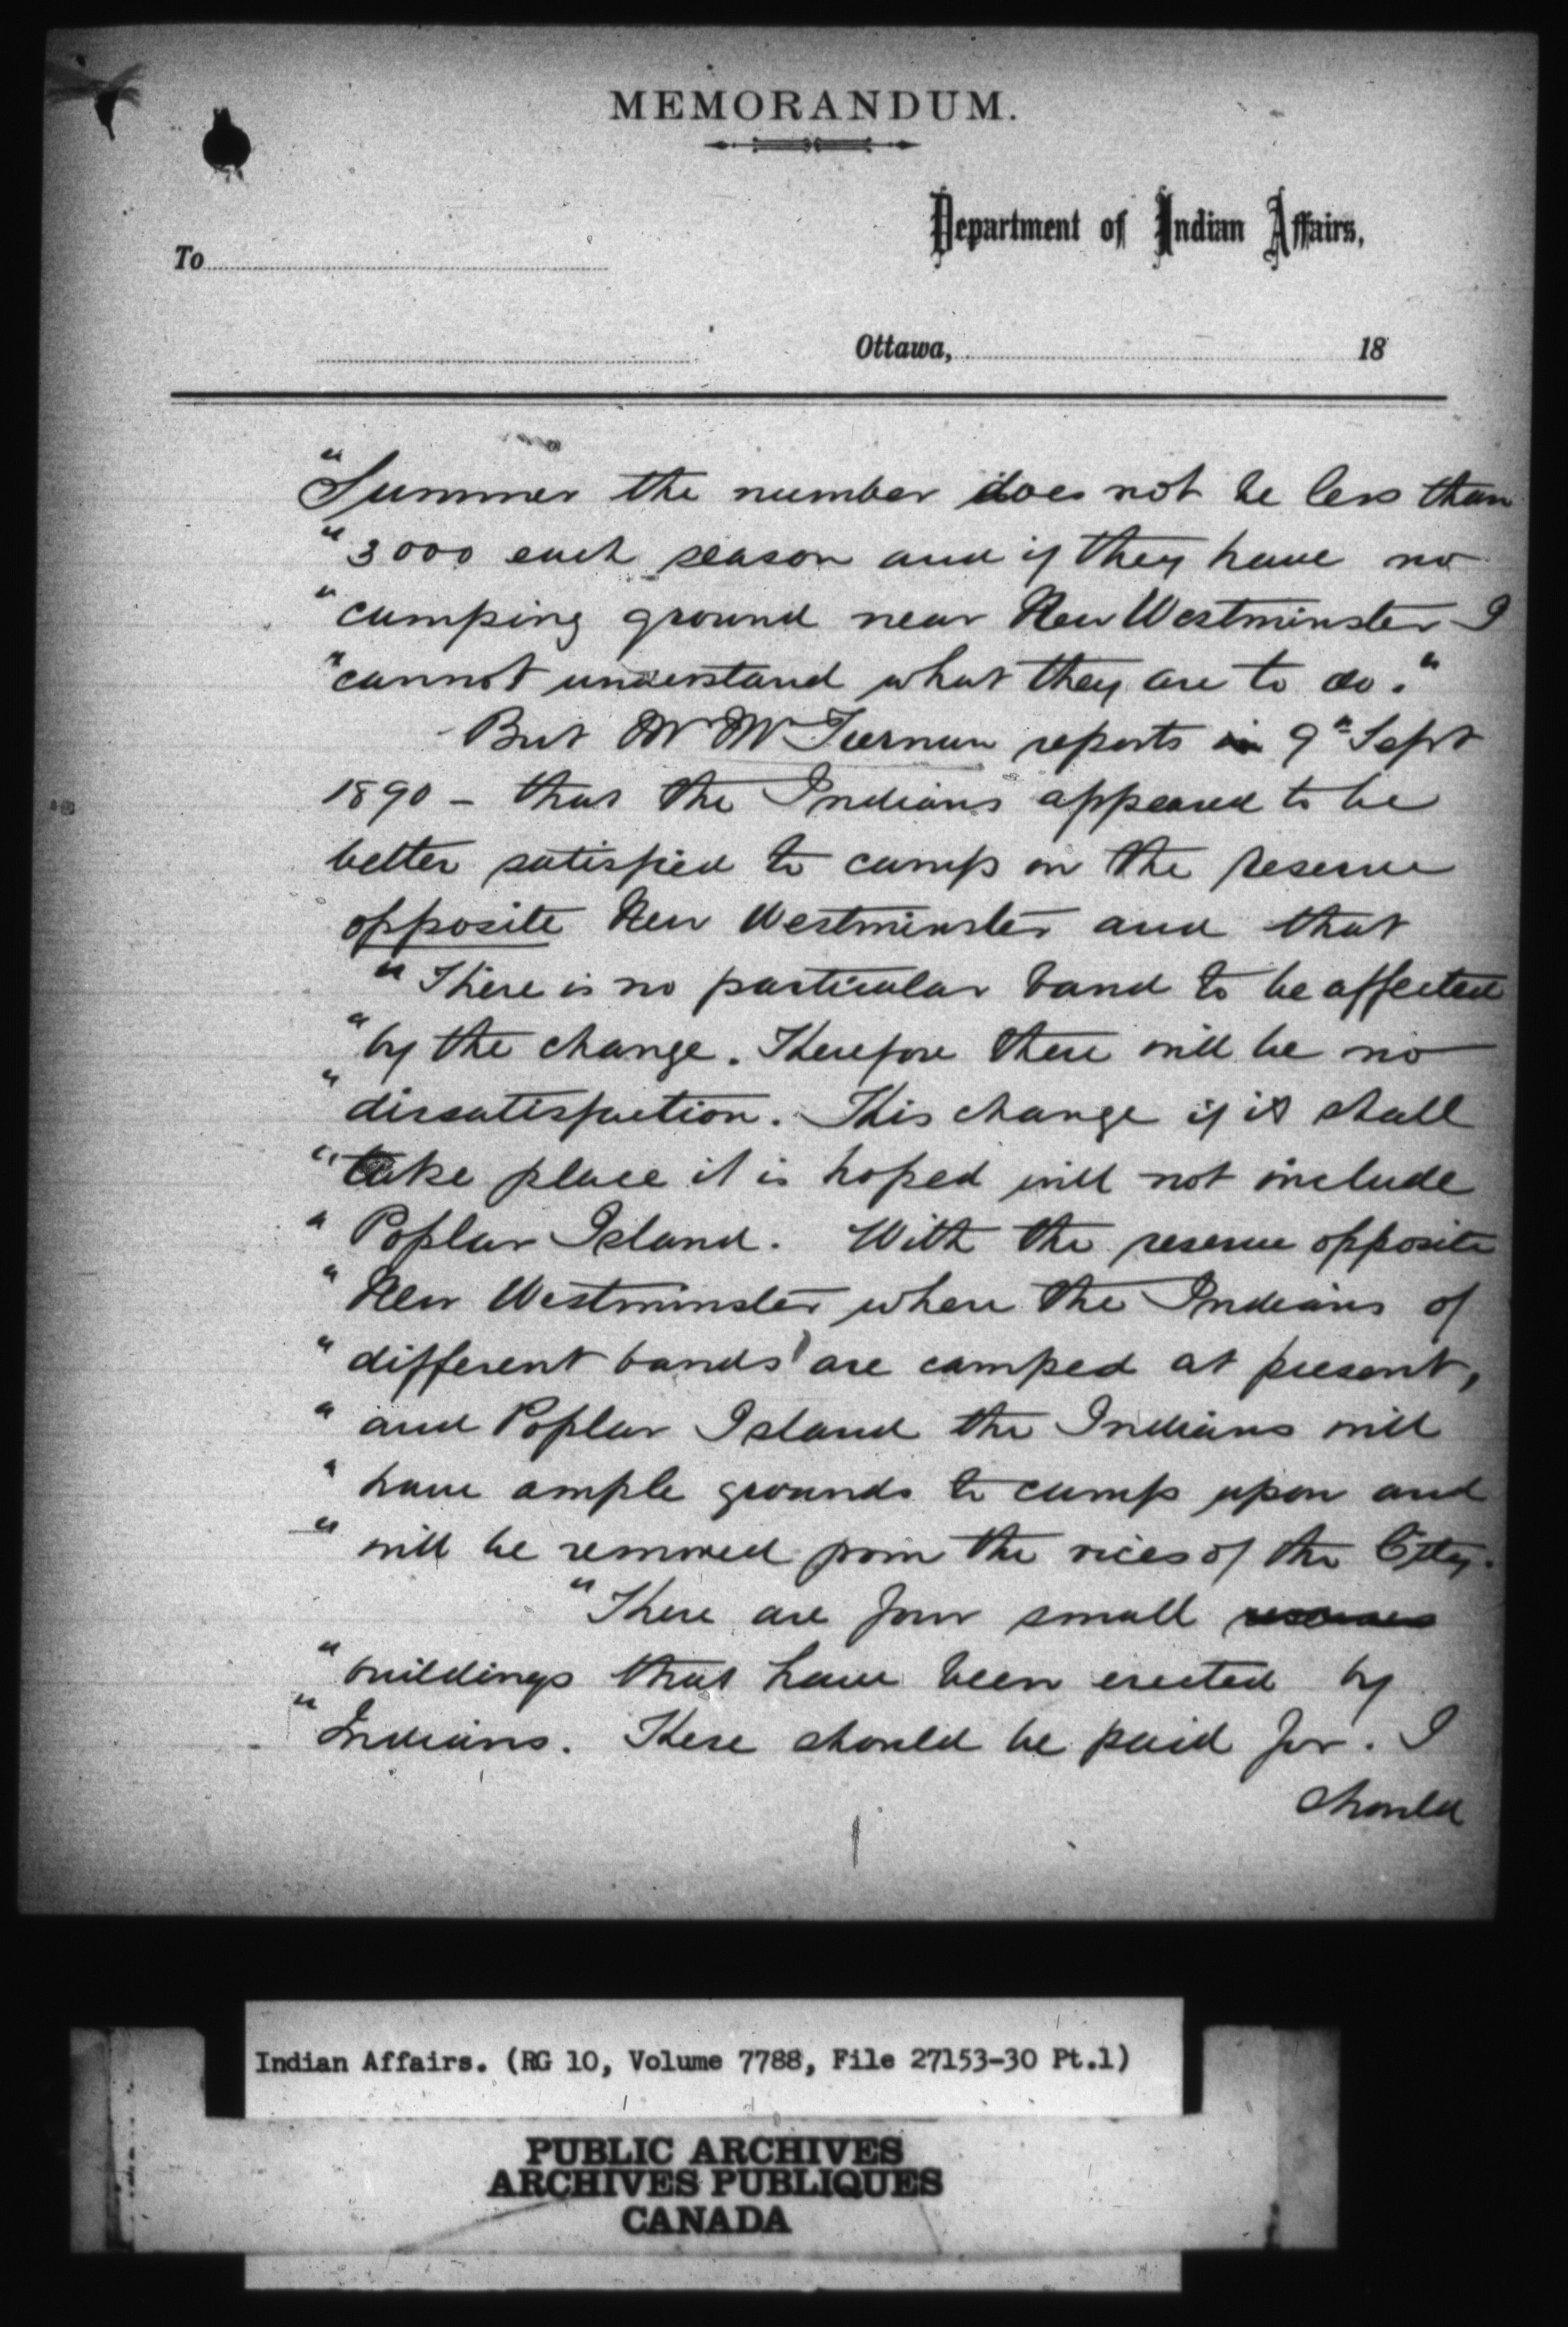 MEMORANDUM.
Department of Indian Affairs,
To
Ottawa, 18
"Summer the number does not be less than
"3000 each season and if they have no
"camping ground near New Westminster I
"cannot understand what they are to do."
But Mr McTiernan reports in 9th Sept
1890 - that the Indians appeared to be
better satisfied to camp on the reserve
opposite New Westminster and that
"There is no particular band to be affected
"by the change. Therefore there will be no
"dissatisfaction. This change if it shall
"take place it is hoped will not include
"Poplar Island. With the reserve opposite
"New Westminster where the Indians of
"different bands are camped at present,
"and Poplar Island the Indians will
"have ample grounds to camp upon and
"will be removed from the vices of the City.
"There are four small reserves
"buildings that have been erected by
"Indians. These should be paid for. I
should
Indian Affairs. (RG 10, Volume 7788, File 27153-30 Pt.1)
PUBLIC ARCHIVES
ARCHIVES PUBLIQUES
CANADA